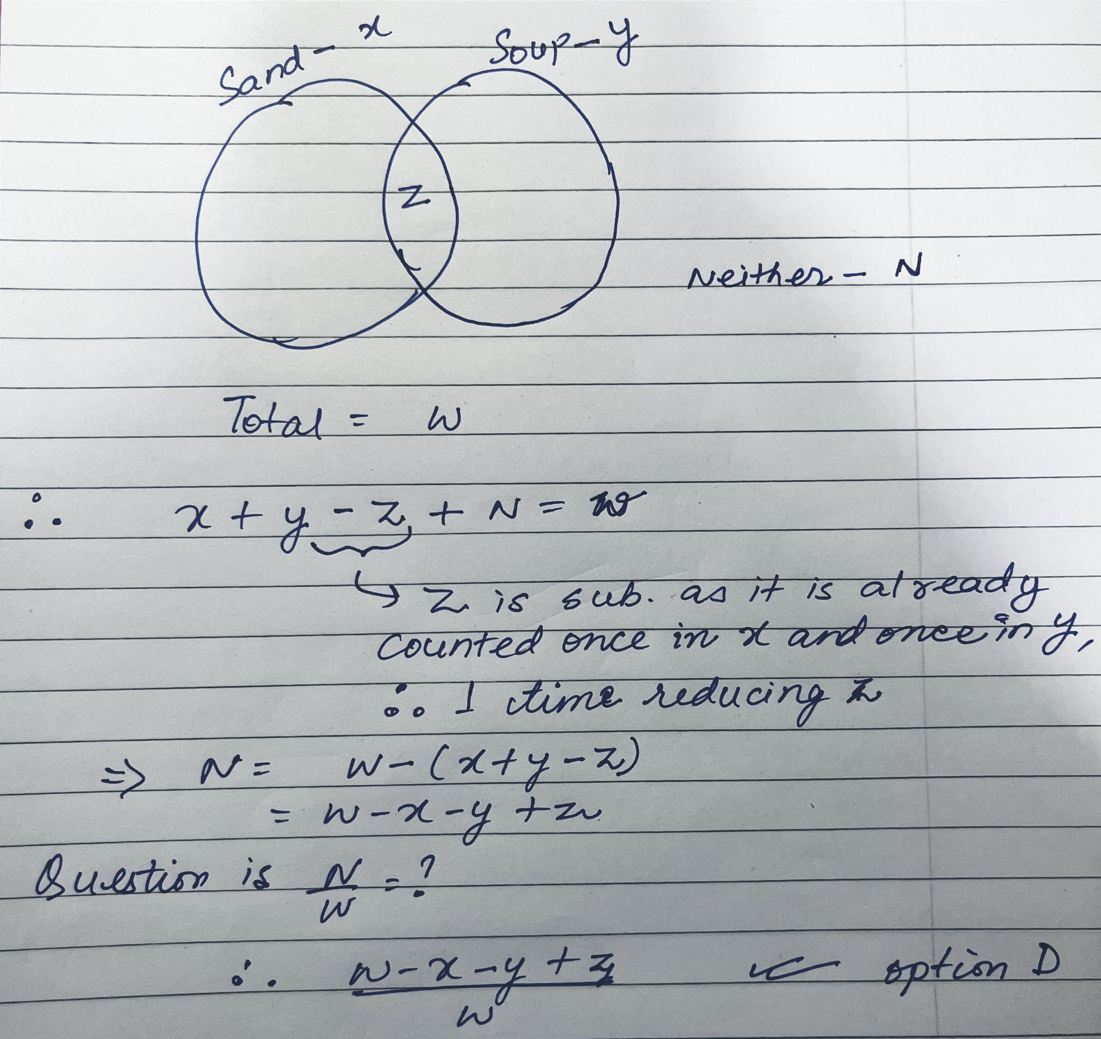 Sand - x
Soup - y
z
Neither - N
Total = w
∴ x + y - z + N = w
↳ z is sub. as it is already
counted once in x and once in y,
∴ 1 time reducing z
⇒ N = w - (x + y - z)
= w - x - y + z
Question is N/w = ?
∴ (w - x - y + z)/w ↙ option D